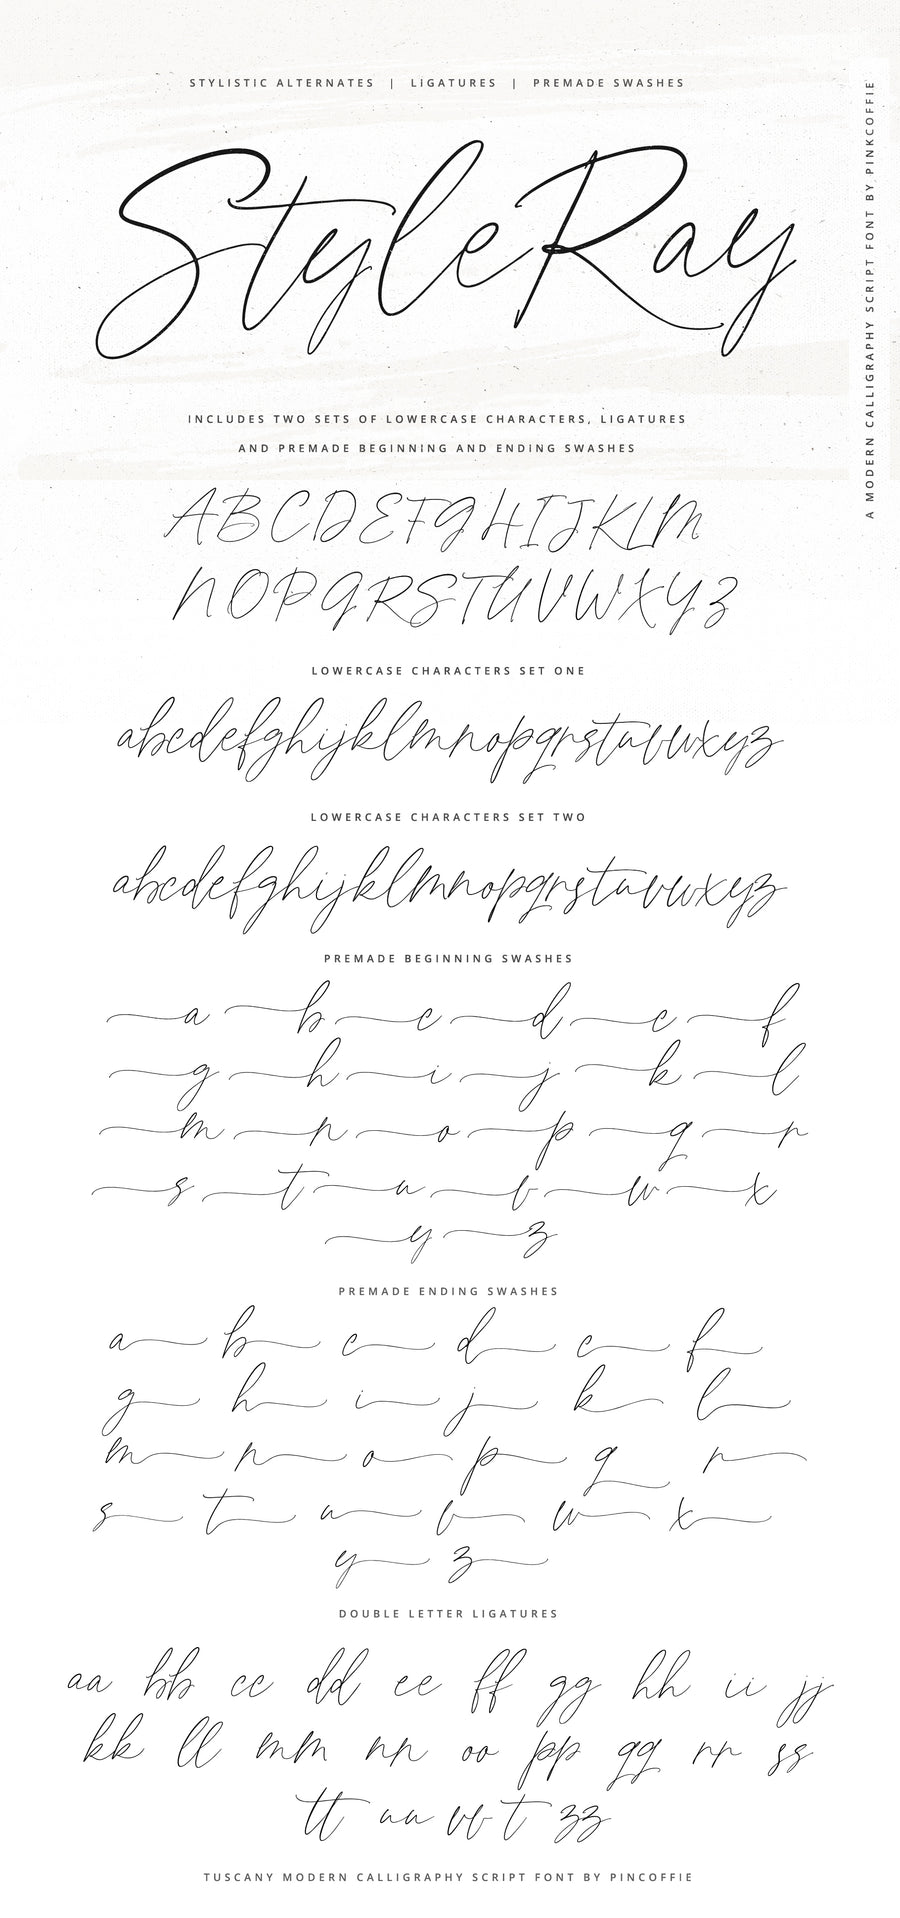 STYLISTIC ALTERNATES | LIGATURES | PREMADE SWASHES
A MODERN CALLIGRAPHY SCRIPT FONT BY PINKCOFFIE
StyleRay
INCLUDES TWO SETS OF LOWERCASE CHARACTERS, LIGATURES
AND PREMADE BEGINNING AND ENDING SWASHES
ABCDEFGHIJKLM
NOPQRSTUVWXYZ
LOWERCASE CHARACTERS SET ONE
abcdefghijklmnopqrstuvwxyz
LOWERCASE CHARACTERS SET TWO
abcdefghijklmnopqrstuvwxyz
PREMADE BEGINNING SWASHES
a b c d e f
g h i j k l
m n o p q r
s t u v w x
y z
PREMADE ENDING SWASHES
a b c d e f
g h i j k l
m n o p q r
s t u v w x
y z
DOUBLE LETTER LIGATURES
aa bb cc dd ee ff gg hh ii jj
kk ll mm nn oo pp qq rr ss
tt uu vv t zz
TUSCANY MODERN CALLIGRAPHY SCRIPT FONT BY PINCOFFIE